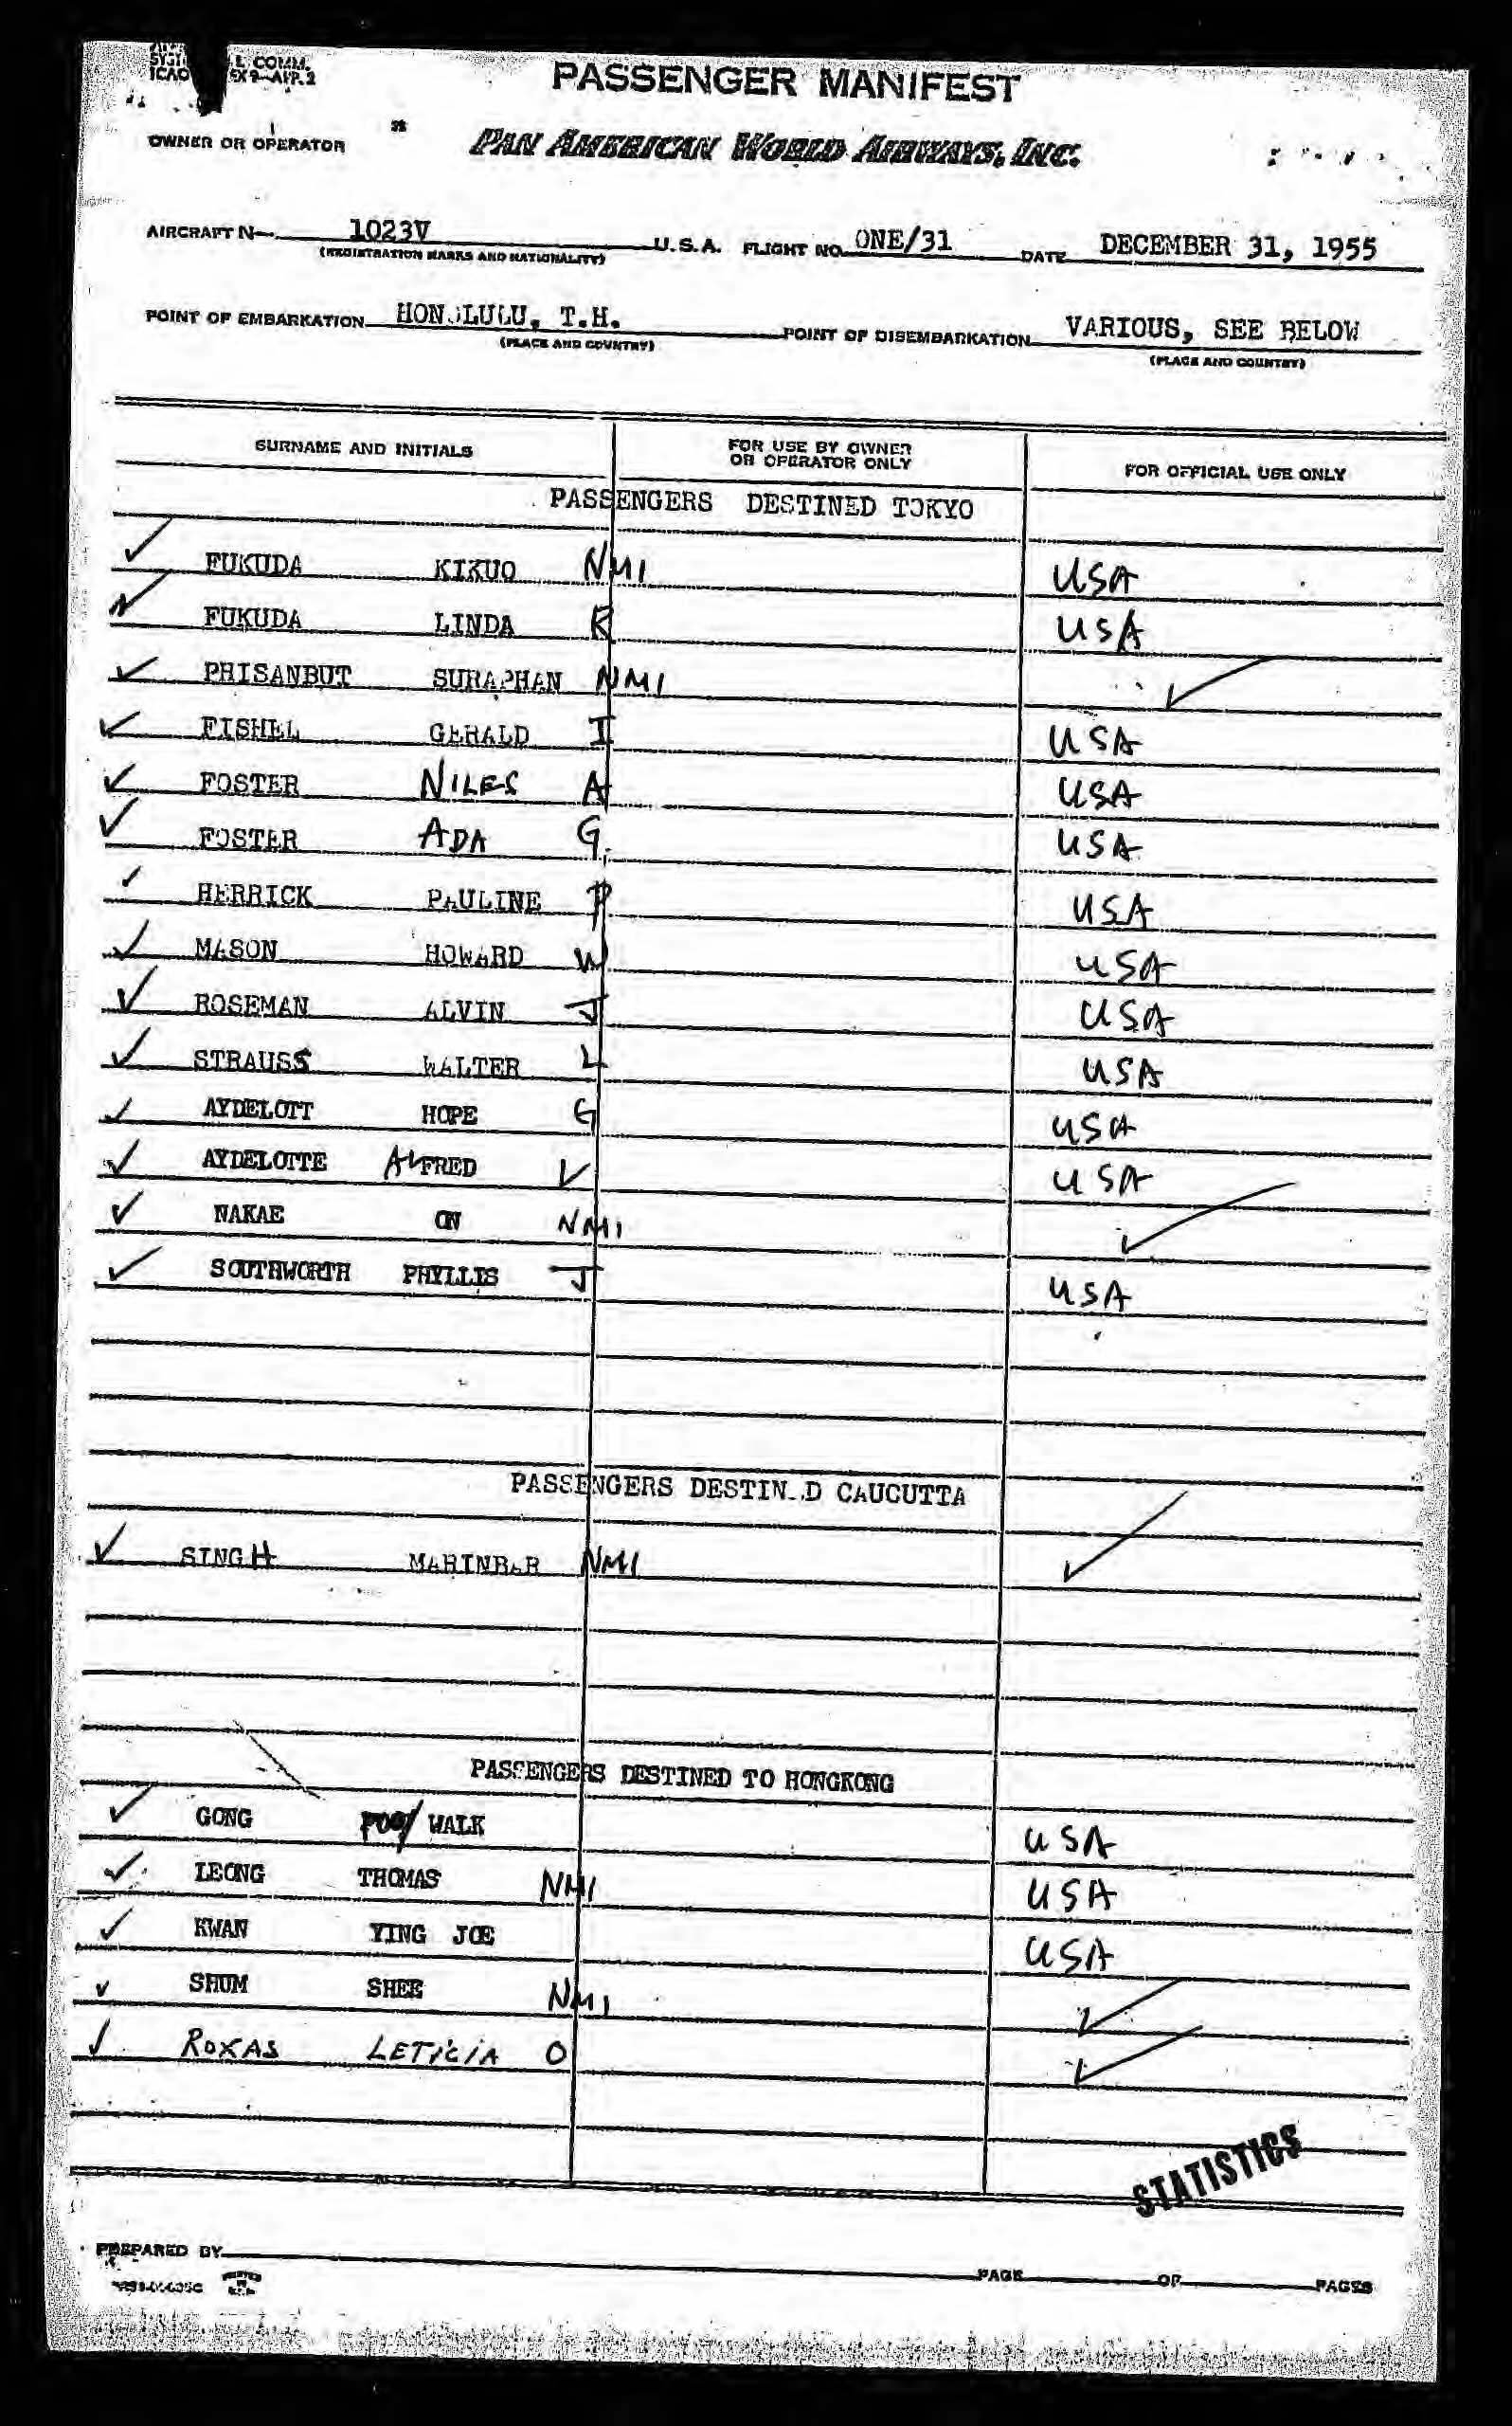 L COMM.
ICAO EX 9-APP. 2
PASSENGER MANIFEST
OWNER OR OPERATOR PAN AMERICAN WORLD AIRWAYS, INC.
AIRCRAFT N- 1023V U.S.A. FLIGHT NO. ONE/31 DATE DECEMBER 31, 1955
(REGISTRATION MARKS AND NATIONALITY)
POINT OF EMBARKATION HONOLULU, T.H. POINT OF DISEMBARKATION VARIOUS, SEE BELOW
(PLACE AND COUNTRY) (PLACE AND COUNTRY)
SURNAME AND INITIALS FOR USE BY OWNER OR OPERATOR ONLY FOR OFFICIAL USE ONLY
PASSENGERS DESTINED TOKYO
✓ FUKUDA KIKUO NMI USA
✓ FUKUDA LINDA K USA
✓ PHISANBUT SURAPHAN NMI ✓
✓ FISHEL GERALD I USA
✓ FOSTER NILES A USA
✓ FOSTER ADA G. USA
✓ HERRICK PAULINE P USA
✓ MASON HOWARD W USA
✓ ROSEMAN ALVIN J USA
✓ STRAUSS WALTER L USA
✓ AYDELOTT HOPE G USA
✓ AYDELOTTE ALFRED V USA
✓ NAKAE ON NMI ✓
✓ SOUTHWORTH PHYLLIS J USA
PASSENGERS DESTIN D CAUCUTTA
✓ SINGH MAHINBAR NMI ✓
PASSENGERS DESTINED TO HONGKONG
✓ GONG FOO/ WALK USA
✓ LEONG THOMAS NMI USA
✓ KWAN YING JOE USA
✓ SHUM SHEE NMI ✓
✓ ROXAS LETICIA O ✓
STATISTICS
PREPARED BY PAGE OF PAGES